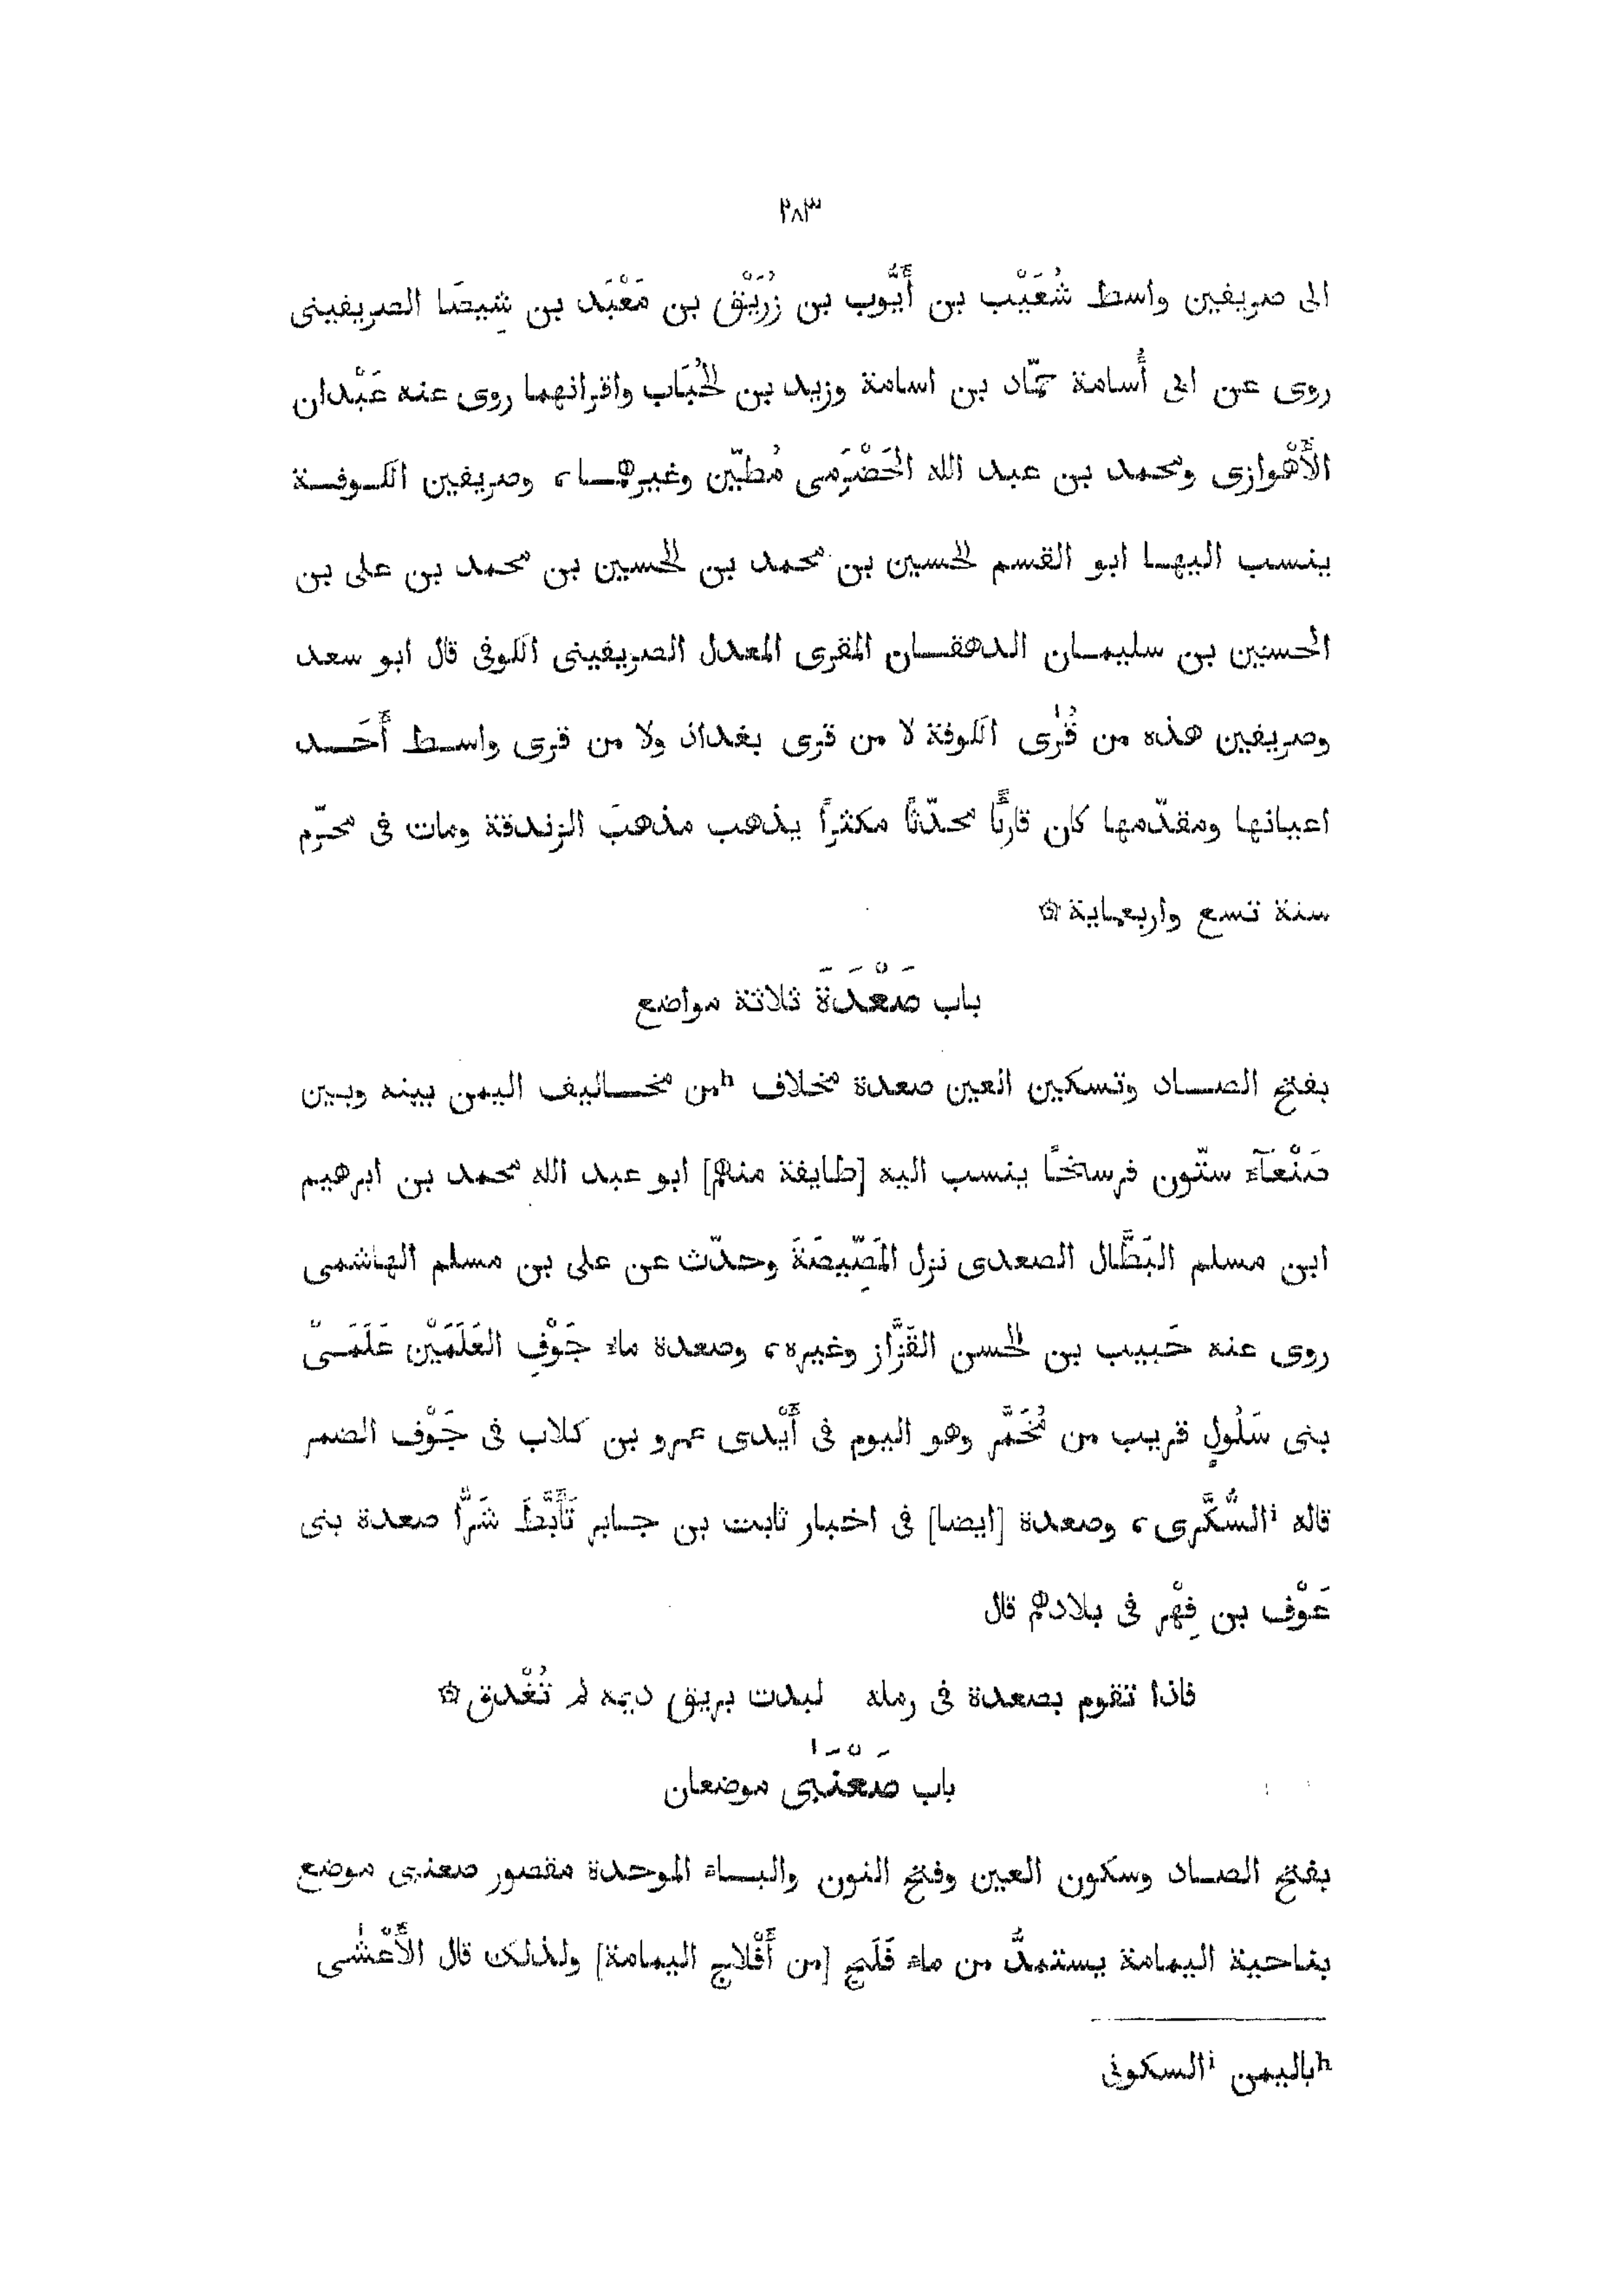 ٢٨٣
الى صريفين واسط شُعَيْب بن أَيُّوب بن زُرَيْق بن مَعْبَد بن شِيصَا الصريفينى
روى عن ابى أُسامة حمّاد بن اسامة وزيد بن الحُبَاب واقرانهما روى عنه عَبْدان
الأَهْوازى ومحمد بن عبد الله الحَضْرَمى مُطيّن وغيرهما، وصريفين الكوفة
ينسب اليها ابو القسم الحسين بن محمد بن الحسين بن محمد بن على بن
الحسين بن سليمان الدهقان المقرى المعدل الصريفينى الكوفى قال ابو سعد
وصريفين هذه من قُرٰى الكوفة لا من قرى بغداد ولا من قرى واسط أَحَد
اعيانها ومقدّمها كان قارئًا محدّثًا مكثرًا يذهب مذهبَ الزندقة ومات فى محرّم
سنة تسع واربعماية ۞
باب صَعْدَةَ ثلاثة مواضع
بفتح الصاد وتسكين العين صعدة مخلاف hمن مخاليف اليمن بينه وبين
صَنْعَآءَ ستّون فرسخًا ينسب اليه [طايفة منهم] ابو عبد الله محمد بن ابرهيم
ابن مسلم البَطَّال الصعدى نزل المَصِّيصَةَ وحدّث عن على بن مسلم الهاشمى
روى عنه حَبيب بن الحسن القَزَّاز وغيره، وصعدة ماء جَوْفِ العَلَمَيْن عَلَمَىْ
بنى سَلُولٍ قريب من مُخَمَّر وهو اليوم فى أَيْدى عمرو بن كلاب فى جَوْف الضمر
قاله iالسُّكَّرى، وصعدة [ايضا] فى اخبار ثابت بن جابر تَأَبَّطَ شَرًّا صعدة بنى
عَوْف بن فِهْر فى بلادهم قال
فاذا تقوم بصعدة فى رملة   لبدت بريق ديمه لم تُغْدق ۞
باب صَعْنَبَى موضعان
بفتح الصاد وسكون العين وفتح النون والباء الموحدة مقصور صعنبى موضع
بناحية اليمامة يستمدُّ من ماء فَلَج [من أَفْلاج اليمامة] ولذلك قال الأَعْشٰى
hباليمن iالسكونى